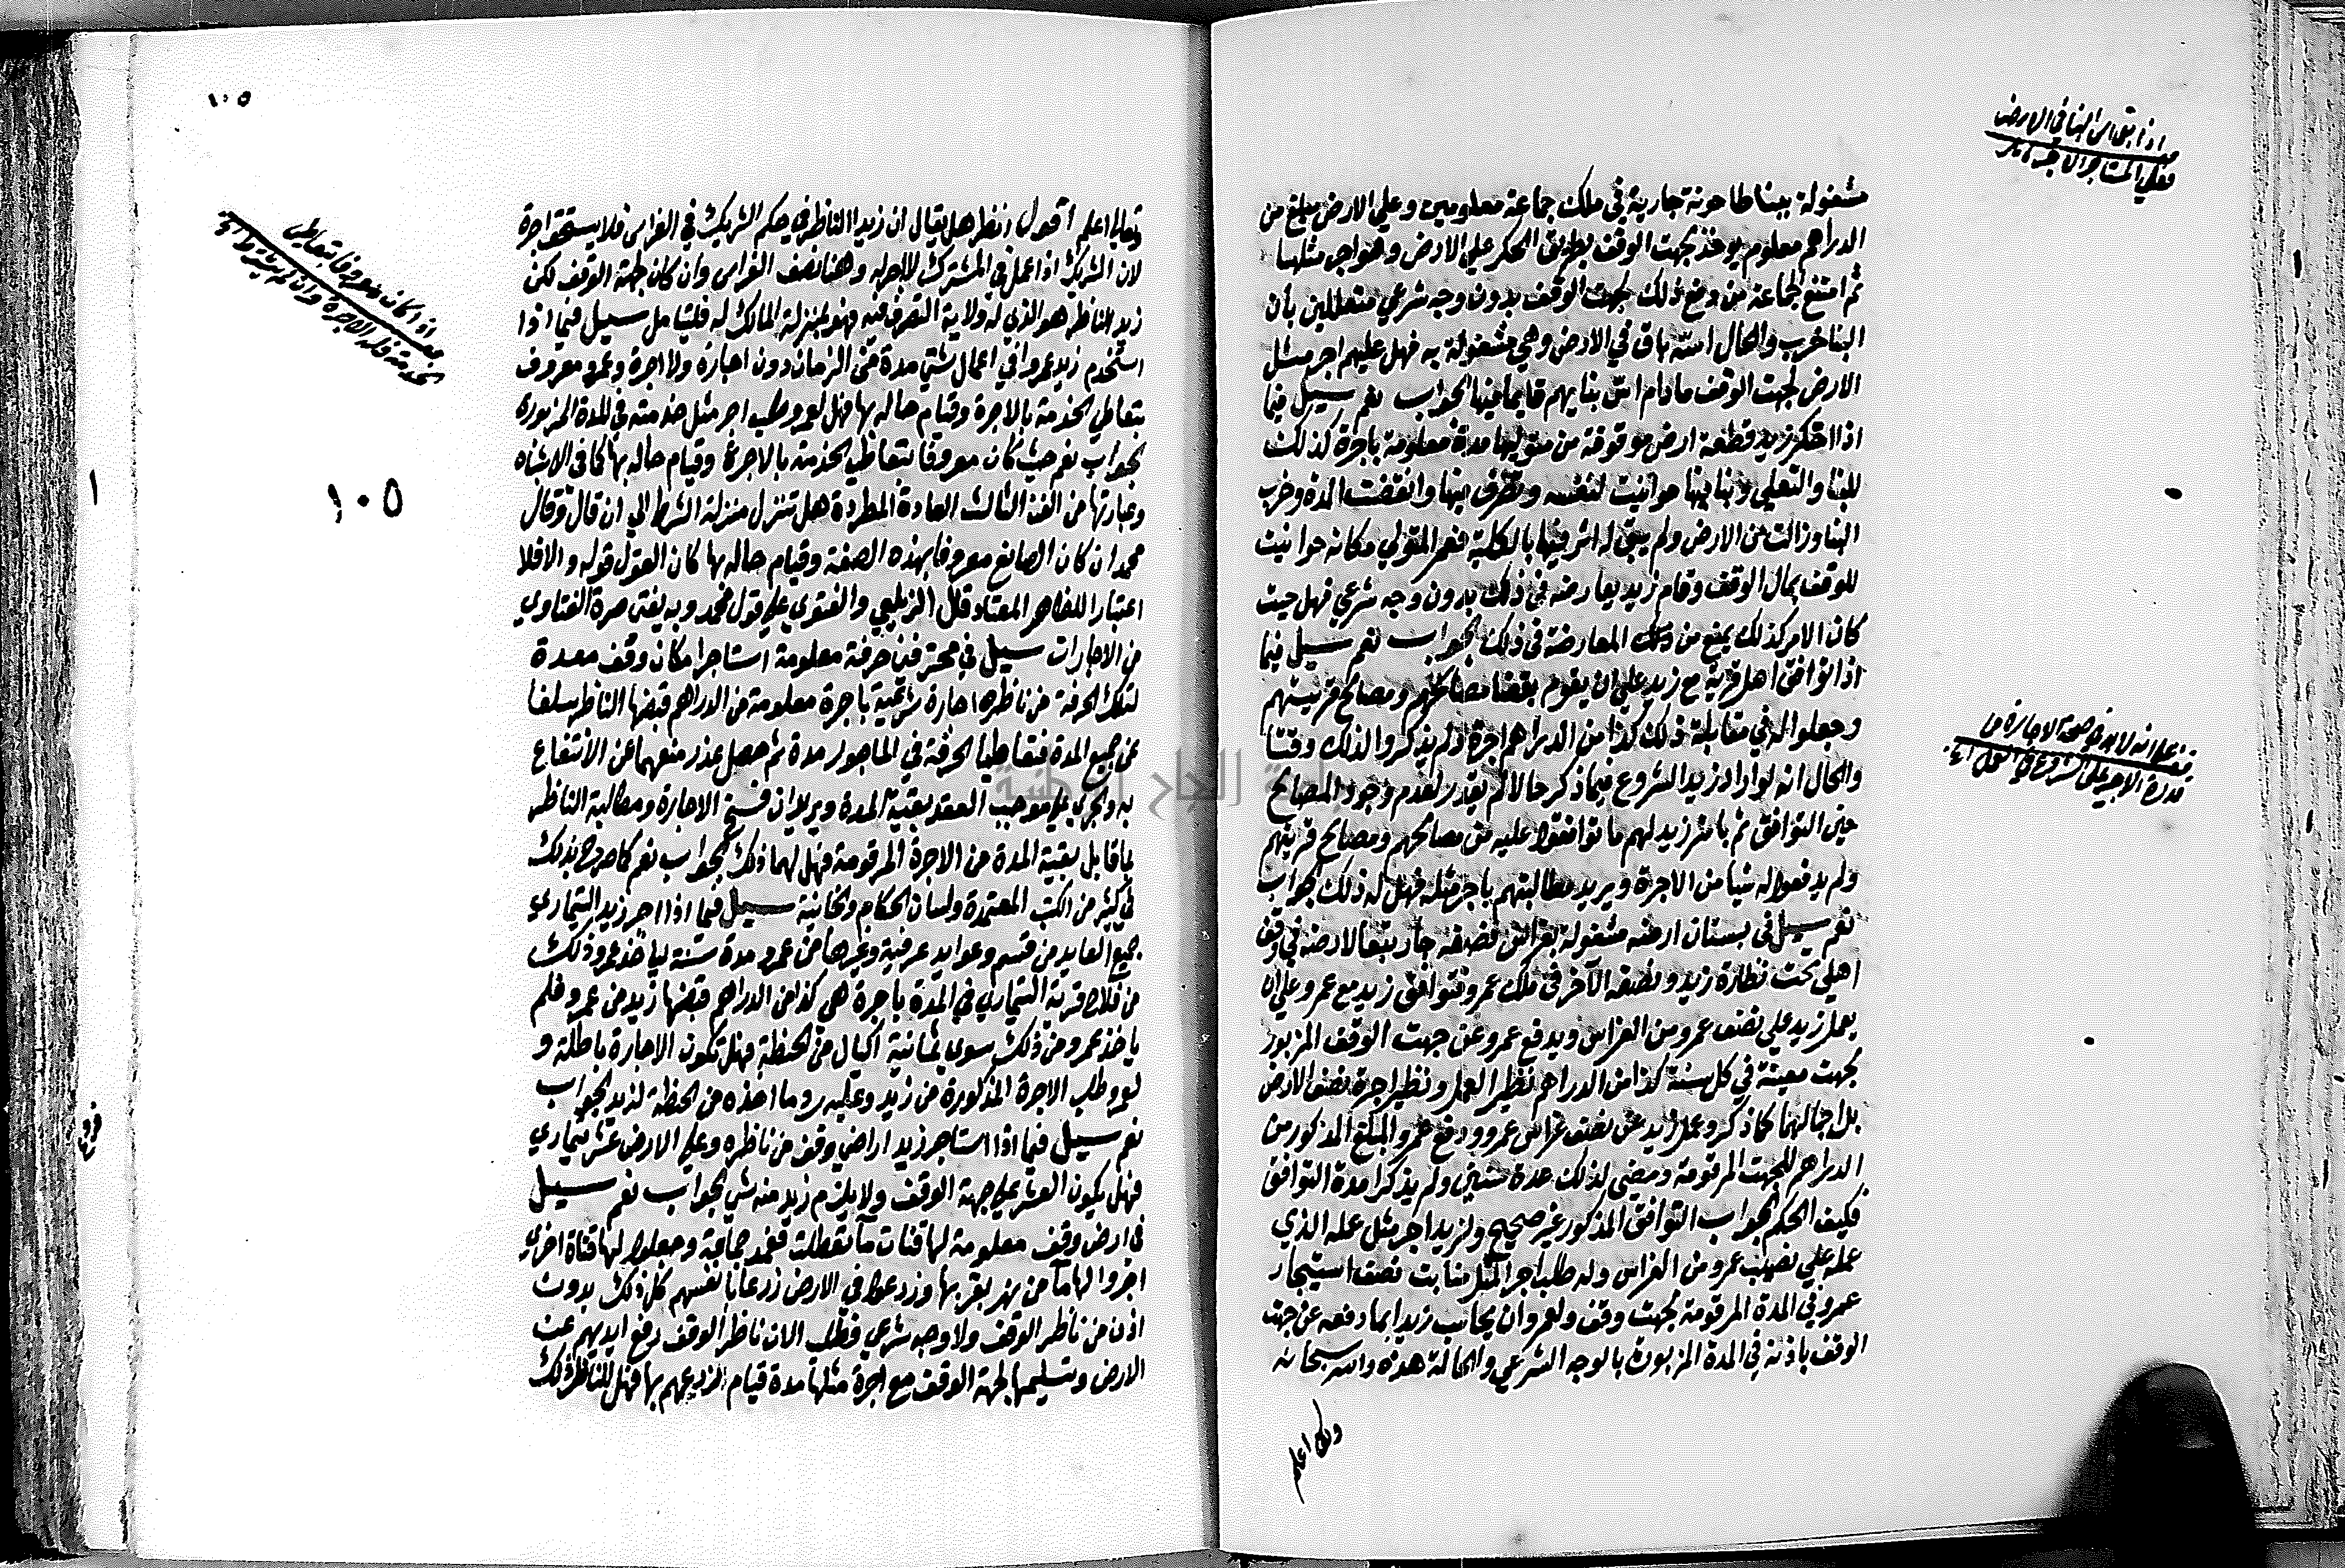 اذا بقي اس البنا في الارض
فعلى المستاجر الاجرة
مشغولة ببنا طاحونة جارية في ملك جماعة معلومين وعلى الارض مبلغ من
الدراهم معلوم يوخذ لجهت الوقف بطريق الحكر على الارض وهو اجر مثلها
ثم امتنع الجماعة من دفع ذلك لجهت الوقف بدون وجه شرعي متعللين بان
البنا خرب والحال اسه باق في الارض وهي مشغولة به فهل عليهم اجر مثل
الارض لجهت الوقف ما دام اس بنايهم قايما فيها الجواب نعم سيل فيما
اذا احتكر زيد قطعة ارض موقوفة من متوليها مدة معلومة باجرة كذلك
للبنا والتعلي وبنا فيها حوانيت لنفسه وتصرف فيها وانقضت المدة وخرب
البنا وزالت من الارض ولم يبق له اثر فيها بالكلية فعمر المتولي مكانه حوانيت
للوقف بمال الوقف وقام زيد يعارضه في ذلك بدون وجه شرعي فهل حيث
كان الامر كذلك يمنع من المعارضة في ذلك الجواب نعم سيل فيما
اذا توافق اهل قرية مع زيد على ان يقوم بقضا مصالحهم ومصالح قريتهم
وجعلوا له في مقابلة ذلك كذا من الدراهم اجرة ولم يذكروا لذلك وقتا
والحال انه لو اراد زيد الشروع فيما ذكر حالا لم يقدر لعدم وجود المصالح
حين التوافق ثم باشر زيد لهم ما توافقوا عليه من مصالحهم ومصالح قريتهم
ولم يدفعوا له شيا من الاجرة ويريد مطالبتهم باجر مثله فهل له ذلك الجواب
نعم سيل في بستان ارضه مشغولة بغراس نصفه جار تبعا لارضه في وقف
اهلي تحت نظارة زيد ونصفه الآخر في ملك عمرو فتوافق زيد مع عمرو على ان
يعمل زيد على نصف عمرو من الغراس ويدفع عمرو عن جهت الوقف المزبور
لجهت معينة في كل سنة كذا من الدراهم نظير العمل ونظير اجرة نصف الارض
بل اجمالهما كما ذكر وعمل زيد عن نصف غراس عمرو ودفع عمرو المبلغ المذكور من
الدراهم للجهت المرقومة ومضى لذلك عدة سنين ولم يذكرا مدة التوافق
فكيف الحكم الجواب التوافق المذكور غير صحيح ولزيد اجر مثل عمله الذي
عمله على نصيب عمرو من الغراس وله طلب اجر المثل منابت نصف استيجار
عمرو في المدة المرقومة لجهت وقف ولعمرو ان يحاسب زيدا بما دفعه عن جهت
الوقف باذنه في المدة المزبورة بالوجه الشرعي والحالة هذه والله سبحانه
قدرة الاجير على الشروع في العمل
١٠٥
وتعالى اعلم اقول انظر هل يقال ان زيدا الناظر في حكم الشريك في الغراس فلا يستحق اجرة
لان الشريك اذا عمل في المشترك لا اجر له وهنا نصف الغراس وان كان لجهة الوقف لكن
زيد الناظر هو الذي له ولاية التصرف فيه فهو بمنزلة المالك له فليتامل سيل فيما اذا
استخدم زيد عمروا في اعمال شتى مدة من الزمان دون اجارة ولا اجرة وعمرو معروف
بتعاطي الخدمة بالاجرة وقيام حاله بها فهل لعمرو طلب اجر مثل خدمته في المدة المزبورة
الجواب نعم حيث كان معروفا بتعاطي الخدمة بالاجرة وقيام حاله بها كما في الاشباه
وعبارتها من الفن الثالث العادة المطردة هل تنزل منزلة الشرط الى ان قال وقال
محمد ان كان الصانع معروفا بهذه الصنعة وقيام حاله بها كان القول قوله والا فلا
اعتبارا للظاهر المعتاد قال الزيلعي والفتوى على قول محمد وبه يفتى صرة الفتاوى
من الاجارات سيل في محترفين حرفة معلومة استاجرا مكان وقف معدة
لتلك الحرفة من ناظره اجارة شرعية باجرة معلومة من الدراهم قبضها الناظر سلفا
عن جميع المدة فتعاطيا الحرفة في الماجور مدة ثم حصل عذر منعهما عن الانتفاع
به والجري على موجب العقد بقية المدة ويريدان فسخ الاجارة ومطالبة الناظر
بما قابل بقية المدة من الاجرة المرقومة فهل لهما ذلك الجواب نعم كما صرح بذلك
في كثير من الكتب المعتمدة ولسان الحكام والخانية سيل فيما اذا اجر زيد التيماري
جميع العايد من قسم وعوايد عرفية وغيرها من عمرو مدة سنة لياخذ عمرو ذلك
من فلاح قرية التيماري في المدة باجرة هي كذا من الدراهم قبضها زيد من عمرو فلم
ياخذ عمرو من ذلك سوى ثمانية اكيال من الحنطة فهل تكون الاجارة باطلة و
لعمرو طلب الاجرة المذكورة من زيد وعليه رد ما اخذه من الحنطة لزيد الجواب
نعم سيل فيما اذا استاجر زيد اراضي وقف من ناظره وعلى الارض عشر تيماري
فهل يكون العشر على جهة الوقف ولا يلزم زيد منه شي الجواب نعم سيل
في ارض وقف معلومة لها قنات مآ تعطلت فعمد جماعة وجعلوا لها قناة اخرى
اجروا لها مآ من نهر بقربها وزرعوا في الارض زرعا لانفسهم كل ذلك بدون
اذن من ناظر الوقف ولا وجه شرعي فطلب الان ناظر الوقف رفع ايديهم عن
الارض وتسليمها لجهة الوقف مع اجرة مثلها مدة قيام زرعهم بها فهل للناظر ذلك
وتعالى اعلم
اذا كان معروفا بتعاطي
الخدمة فله الاجرة وان لم يشترط
١٠٥